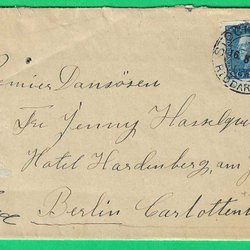 remier Dansösen
Frk Jenny Hasselqu
Hotel Hardenberg, am
Berlin Carlotten